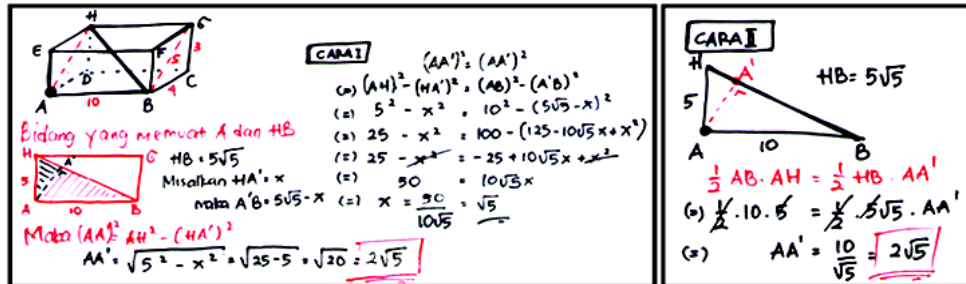 H
G
E
F
3
5
D
C
4
A
10
B
Bidang yang memuat A dan HB
H
G
A'
5
A
10
B
HB = 5√5
Misalkan HA' = x
maka A'B = 5√5 - x
Maka (AA')² = AH² - (HA')²
AA' = √(5² - x²) = √(25-5) = √20 = 2√5
CARA I
(AA')² = (AA')²
(=) (AH)² - (HA')² = (AB)² - (A'B)²
(=) 5² - x² = 10² - (5√5 - x)²
(=) 25 - x² = 100 - (125 - 10√5x + x²)
(=) 25 - x² = -25 + 10√5x + x²
(=) 50 = 10√5x
(=) x = 50/10√5 = √5
CARA II
H
A'
HB = 5√5
5
A
10
B
1/2 AB . AH = 1/2 HB . AA'
(=) 1/2 . 10 . 5 = 1/2 . 5√5 . AA'
(=) AA' = 10/√5 = 2√5